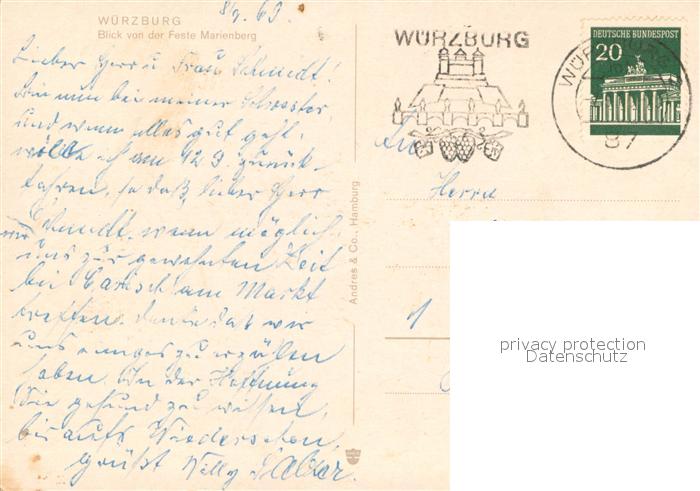 WÜRZBURG
Blick von der Feste Marienberg
8/9. 69.
Lieber Herr u. Frau Schmidt!
Bin nun bei meiner Schwester
und wenn alles gut geht,
will ich am 12.9. zurück-
fahren, so daß, lieber Herr
Schmidt, wenn möglich,
wir uns zur gewohnten Zeit
bei am Markt
treffen. Denke daß wir
uns einiges zu erzählen
haben. In der Hoffnung
Sie gesund zu wissen,
bis aufs Wiedersehen,
grüßt Willy
Andres & Co., Hamburg
WÜRZBURG
DEUTSCHE BUNDESPOST
20
WÜRZBURG
87
An
Herrn
1
privacy protection
Datenschutz